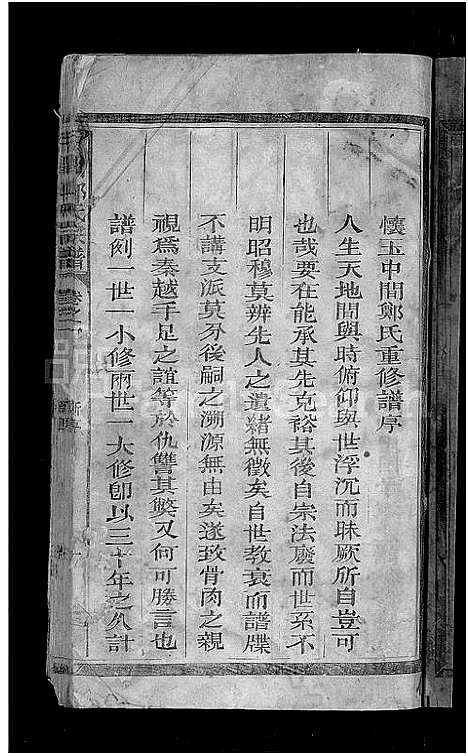 懷玉中間鄭氏重修譜序
人生天地間與時俯仰與世浮沉而昧厥所自豈可
也哉要在能承其先克裕其後自宗法廢而世系不
明昭穆莫辨先人之遺緒無徵矣自世教衰而譜牒
不講支派莫分後嗣之溯源無由矣遂致骨肉之親
視爲秦越手足之誼等於仇讐其獘又何可勝言也
譜例一世一小修兩世一大修卽以三十年之久計
鄭氏族譜